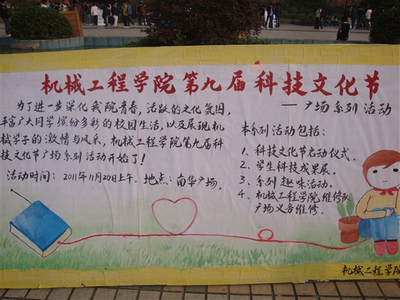 机械工程学院第九届科技文化节
——广场系列活动
为了进一步深化我院青春、活跃的文化氛围,
丰富广大同学缤纷多彩的校园生活,以及展现机
械学子的激情与风采,机械工程学院第九届科
技文化节广场系列活动开始了!
活动时间:2011年11月20日上午. 地点:南华广场.
本系列活动包括:
1、科技文化节启动仪式.
2、学生科技成果展.
3、系列趣味活动.
4、机械工程学院维修队
广场义务维修.
机械工程学院